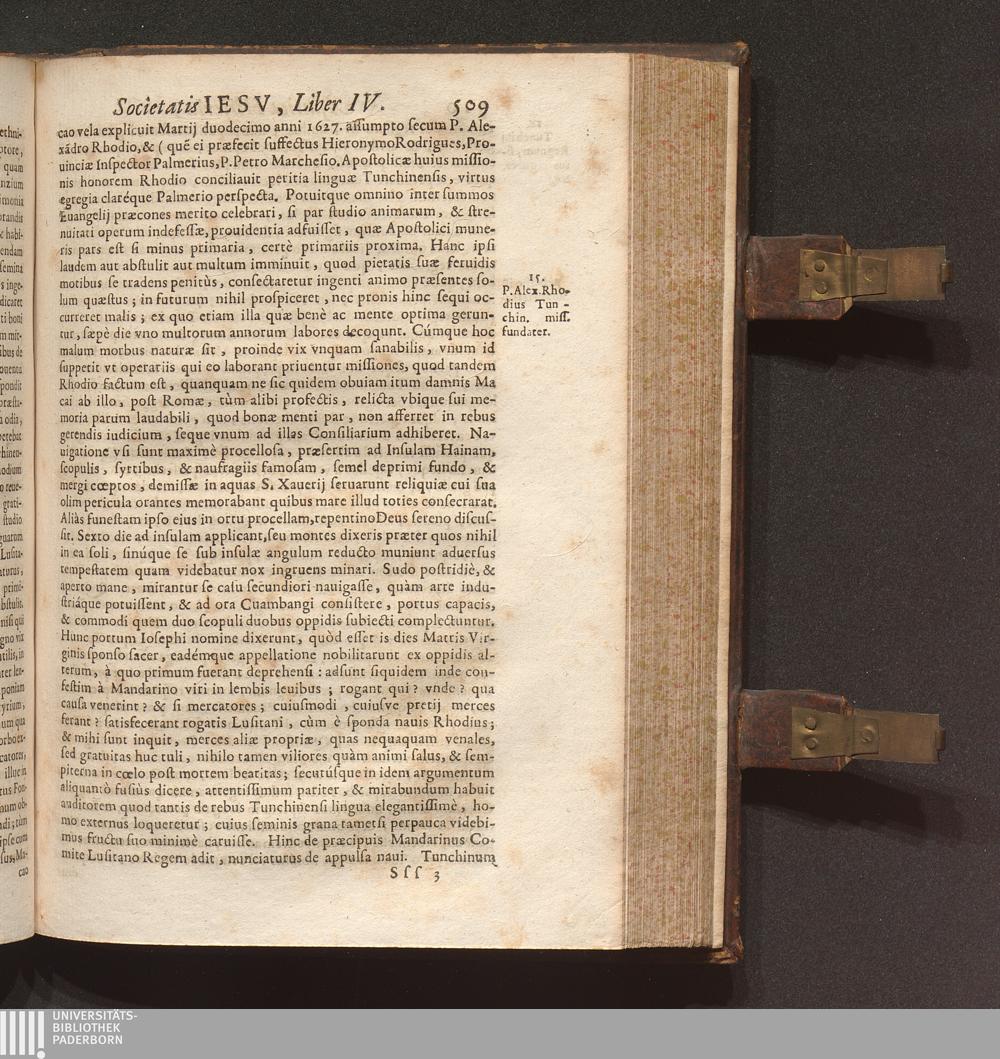 Societatis IESV, Liber IV. 509
cao vela explicuit Martij duodecimo anni 1627. assumpto secum P. Ale-
xãdro Rhodio, & ( quẽ ei præfecit suffectus Hieronymo Rodrigues, Pro-
uinciæ Inspector Palmerius, P. Petro Marchesio. Apostolicæ huius missio-
nis honorem Rhodio conciliauit peritia linguæ Tunchinensis, virtus
egregia claréque Palmerio perspecta. Potuitque omnino inter summos
Euangelij præcones merito celebrari, si par studio animarum, & stre-
nuitati operum indefessæ, prouidentia adfuisset, quæ Apostolici mune-
ris pars est si minus primaria, certè primariis proxima. Hanc ipsi
laudem aut abstulit aut multum imminuit, quod pietatis suæ feruidis
motibus se tradens penitùs, consectaretur ingenti animo præsentes so-
lum quæstus; in futurum nihil prospiceret, nec pronis hinc sequi oc-
curreret malis; ex quo etiam illa quæ benè ac mente optima gerun-
tur, sæpè die vno multorum annorum labores decoqunt. Cúmque hoc
malum morbus naturæ sit, proinde vix vnquam sanabilis, vnum id
suppetit vt operariis qui eo laborant priuentur missiones, quod tandem
Rhodio factum est, quanquam ne sic quidem obuiam itum damnis Ma
cai ab illo, post Romæ, tùm alibi profectis, relicta vbique sui me-
moria parum laudabili, quod bonæ menti par, non afferret in rebus
gerendis iudicium, seque vnum ad illas Consiliarium adhiberet. Na-
uigatione vsi sunt maximè procellosa, præsertim ad Insulam Hainam,
scopulis, syrtibus, & naufragiis famosam, semel deprimi fundo, &
mergi cœptos, demissæ in aquas S. Xauerij seruarunt reliquiæ cui sua
olim pericula orantes memorabant quibus mare illud toties consecrarat.
Aliàs funestam ipso eius in ortu procellam, repentino Deus sereno discus-
sit. Sexto die ad insulam applicant, seu montes dixeris præter quos nihil
in ea soli, sinúque se sub insulæ angulum reducto muniunt aduersus
tempestatem quam videbatur nox ingruens minari. Sudo postridiè, &
aperto mane, mirantur se casu secundiori nauigasse, quàm arte indu-
striáque potuissent, & ad ora Cuambangi consistere, portus capacis,
& commodi quem duo scopuli duobus oppidis subiecti complectuntur.
Hunc portum Iosephi nomine dixerunt, quòd esset is dies Matris Vir-
ginis sponso sacer, eadémque appellatione nobilitarunt ex oppidis al-
terum, à quo primum fuerant deprehensi: adsunt siquidem inde con-
festim à Mandarino viri in lembis leuibus; rogant qui? vnde? qua
causa venerint? & si mercatores; cuiusmodi, cuiusve pretij merces
ferant? satisfecerant rogatis Lusitani, cùm è sponda nauis Rhodius;
& mihi sunt inquit, merces aliæ propriæ, quas nequaquam venales,
sed gratuitas huc tuli, nihilo tamen viliores quàm animi salus, & sem-
piterna in cœlo post mortem beatitas; secutúsque in idem argumentum
aliquantò fusiùs dicere, attentissimum pariter, & mirabundum habuit
auditorem quod tantis de rebus Tunchinensi lingua elegantissimè, ho-
mo externus loqueretur; cuius seminis grana tametsi perpauca videbi-
mus fructu suo minimè caruisse. Hinc de præcipuis Mandarinus Co-
mite Lusitano Regem adit, nunciaturus de appulsa naui. Tunchinum
Sss 3
15.
P. Alex. Rho-
dius Tun-
chin. miss.
fundater.
UNIVERSITÄTS-
BIBLIOTHEK
PADERBORN